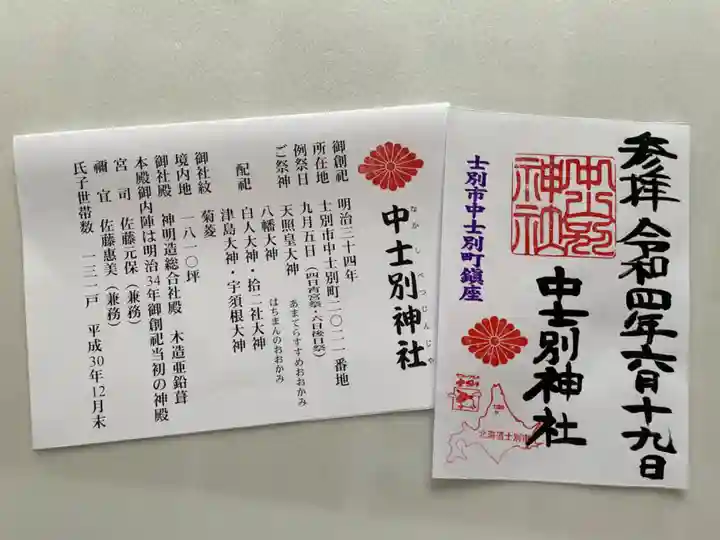 参拝 令和四年六月十九日
中士別神社
中士別神社
士別市中士別町鎮座
北海道士別市
中士別神社
なかしべつじんじゃ
御創祀 明治三十四年
所在地 士別市中士別町二〇一一番地
例祭日 九月五日(四日宵宮祭・六日後日祭)
ご祭神 天照皇大神 あまてらすすめおおかみ
八幡大神 はちまんのおおかみ
配祀 白人大神・拾二社大神
津島大神・宇須根大神
御社紋 菊菱
境内地 一八一〇坪
御社殿 神明造総合社殿 木造亜鉛葺
本殿御内陣は明治34年御創祀当初の神殿
宮司 佐藤元保(兼務)
禰宜 佐藤惠美(兼務)
氏子世帯数 一三一戸 平成30年12月末